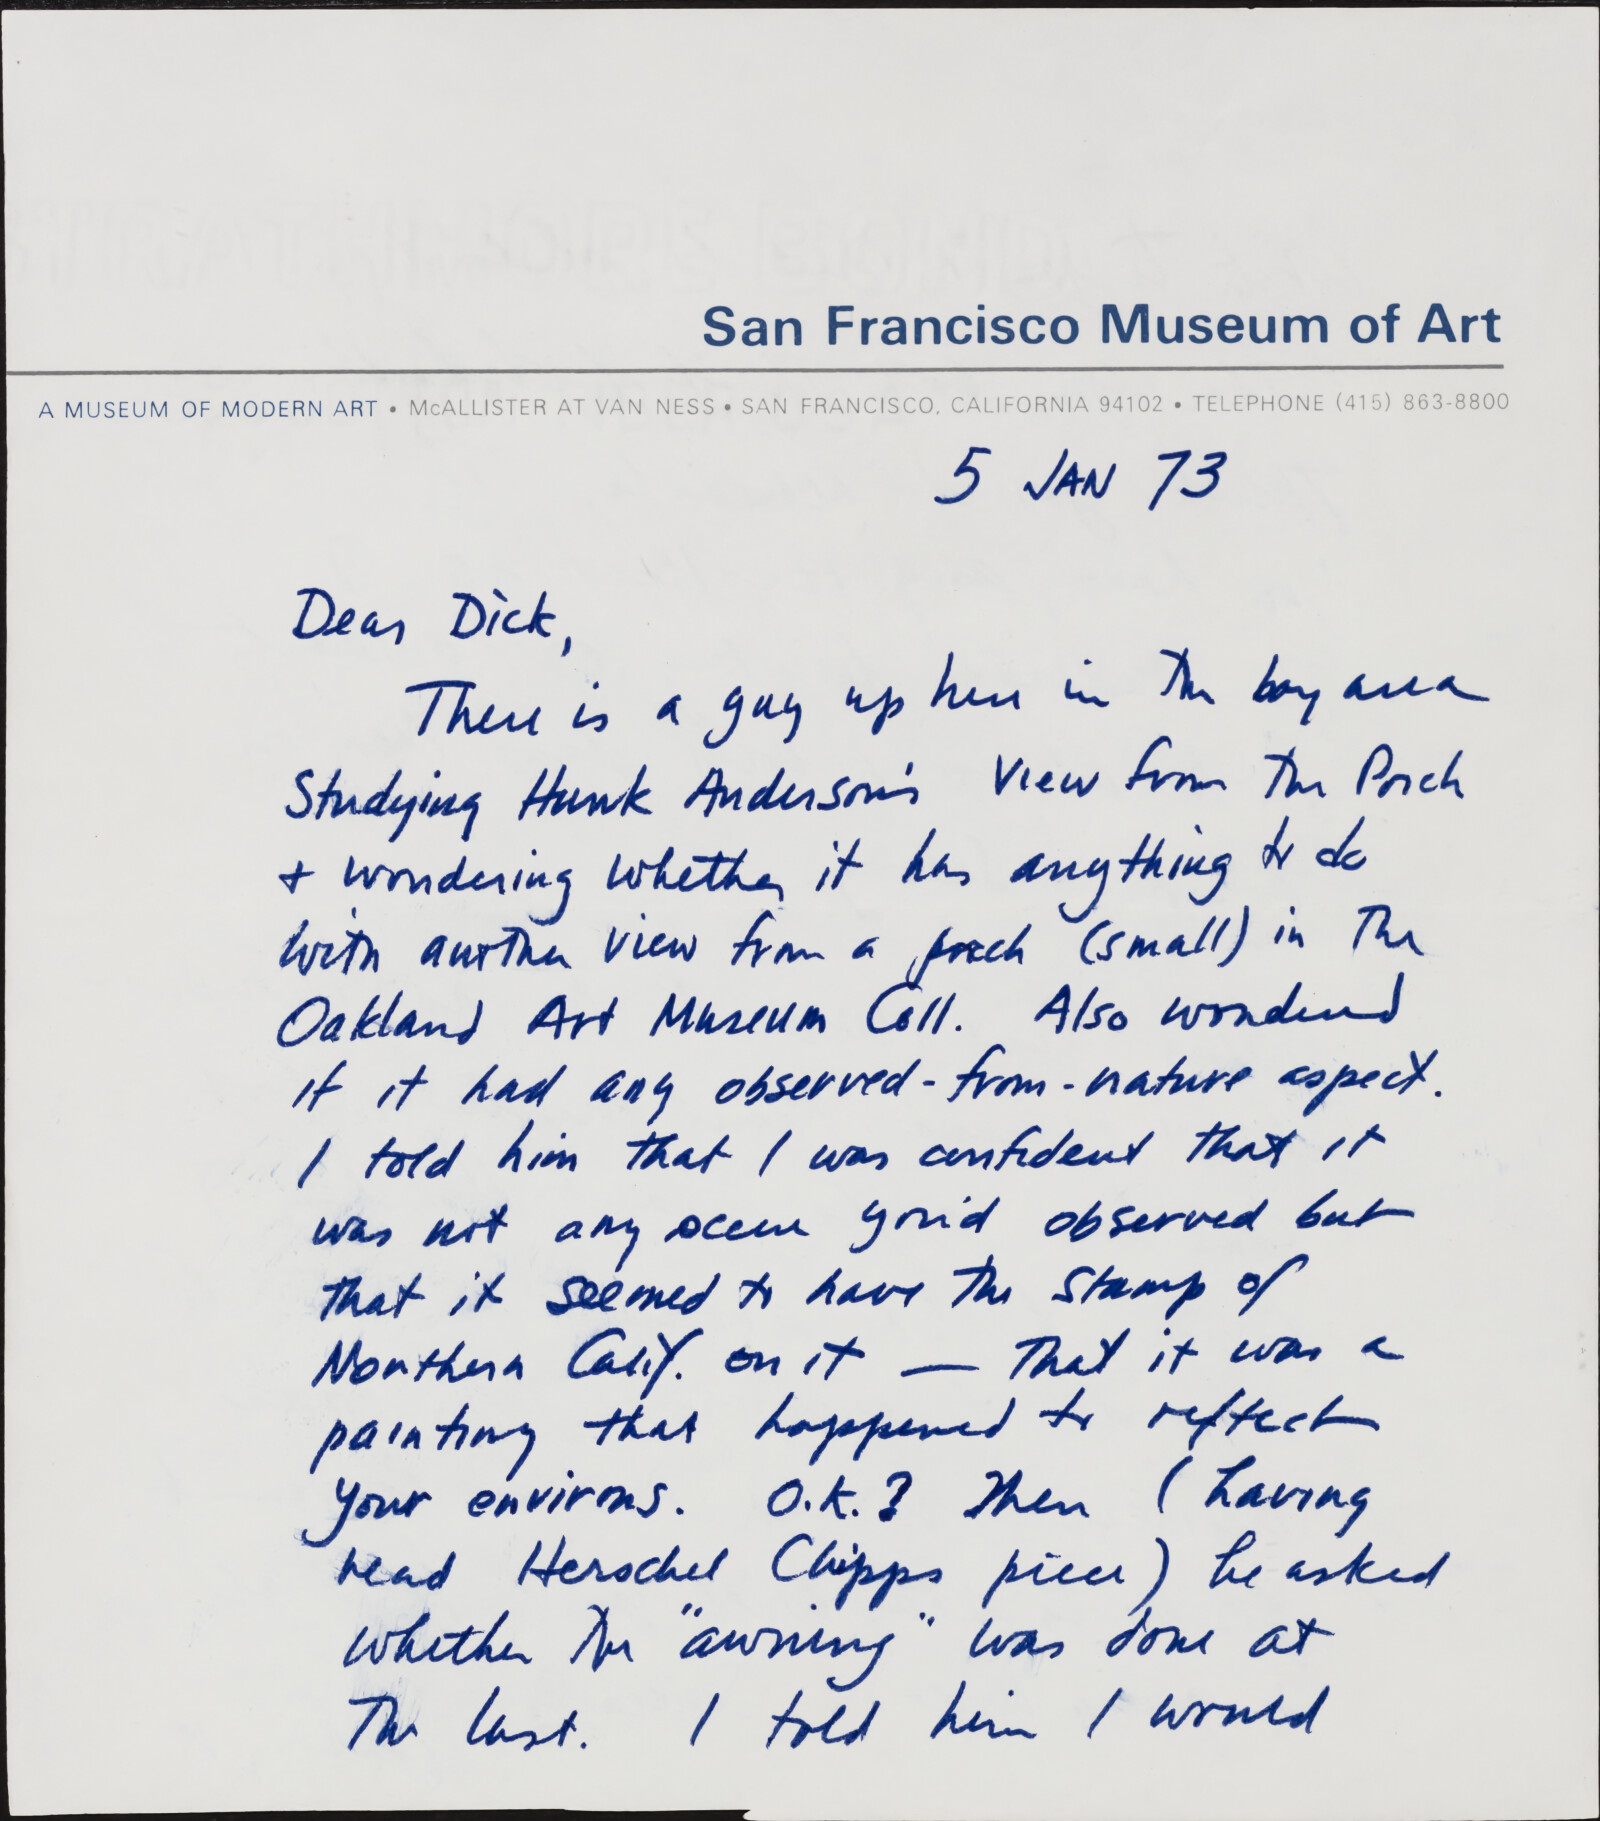 San Francisco Museum of Art
A MUSEUM OF MODERN ART • McALLISTER AT VAN NESS • SAN FRANCISCO, CALIFORNIA 94102 • TELEPHONE (415) 863-8800
5 JAN 73
Dear Dick,
There is a guy up here in the bay area
Studying Hunk Anderson's View from the Porch
+ wondering whether it has anything to do
with another view from a porch (small) in the
Oakland Art Museum Coll. Also wondered
if it had any observed-from-nature aspect.
I told him that I was confident that it
was not any scene you'd observed but
that it seemed to have the stamp of
Northern Calif. on it — that it was a
painting that happened to reflect
your environs. O.K.? Then (having
read Herschel Chipps piece) he asked
whether the "awning" was done at
the last. I told him I would